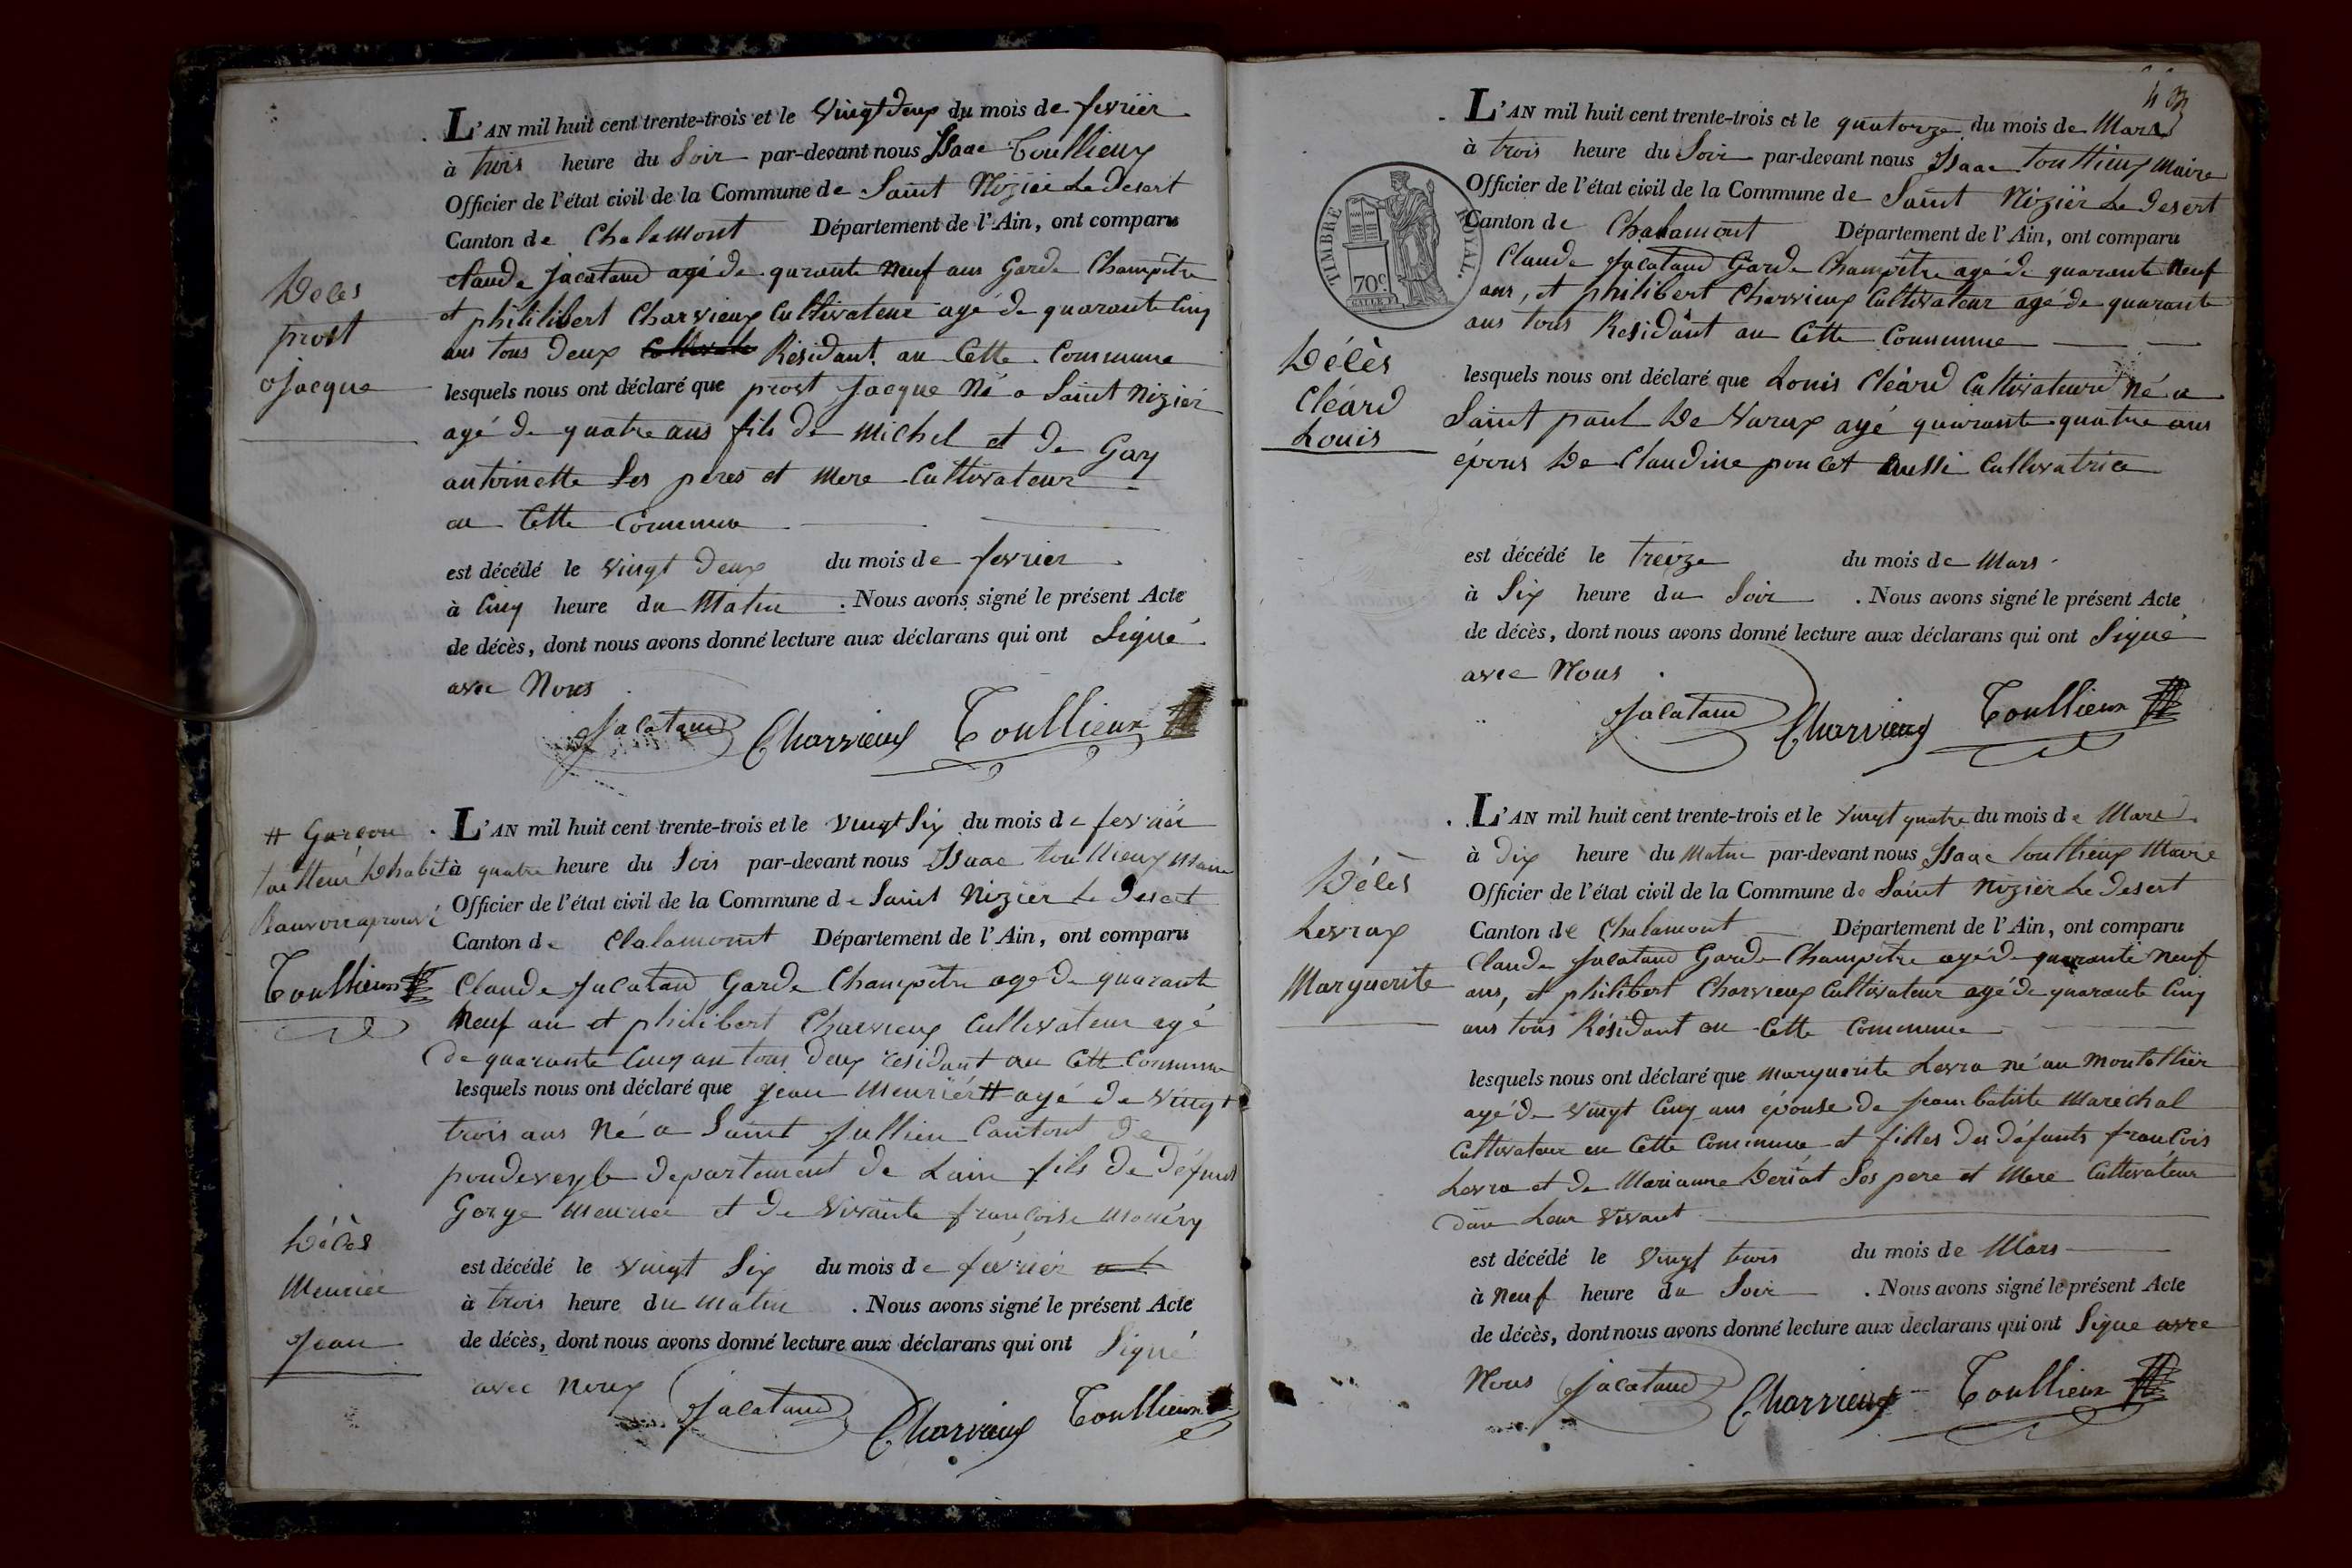 L'AN mil huit cent trente-trois et le vingt deux du mois de fevrier
à trois heure du Soir par-devant nous Isaac Toullieux
Officier de l'état civil de la Commune de Saint Nizier Le Desert
Canton de Chalamont Département de l'Ain, ont comparu
Claude Jacataud agé de quarante Neuf ans Garde Champêtre
et philibert Charvieux Cultivateur agé de quarante Cinq
ans tous deux Résidant au Cette Commune
Déces
prost
Jacque
lesquels nous ont déclaré que prost Jacque Né a Saint Nizier
agé de quatre ans fils de Michel et de Gay
antoinette Ses peres et Mere Cultivateur
au Cette Commune
est décédé le vingt deux du mois de fevrier
à Cinq heure du Matin . Nous avons signé le présent Acte
de décès, dont nous avons donné lecture aux déclarans qui ont Signé
avec Nous
Jacataud Charvieux Toullieux
# Garçon
tailleur Dhabit
Toullieux
L'AN mil huit cent trente-trois et le vingt Six du mois de fevrier
à quatre heure du Soir par-devant nous Isaac toullieux Maire
Officier de l'état civil de la Commune de Saint Nizier Le Desert
Canton de Clalamont Département de l'Ain, ont comparu
Claude Jacataud Garde Champetre agé de quarante
Neuf an et philibert Charvieux Cultivateur agé
de quarante Cinq an tous deux residant au Cette Commune
lesquels nous ont déclaré que Jean Meuriér # agé de Vingt
trois ans Né a Saint Jullien Cantont de
pondeveyle departement de Lain fils de défunt
Gorge Meuriée et de Vivante francoise Monéry
Décès
Meuriée
Jean
est décédé le vingt Six du mois de février
à trois heure du Matin . Nous avons signé le présent Acte
de décès, dont nous avons donné lecture aux déclarans qui ont Signé
avec Noux
Jacataud Charvieux Toullieux
L'AN mil huit cent trente-trois et le quatorze du mois de Mars
à trois heure du Soir par-devant nous Isaac toullieux Maire
Officier de l'état civil de la Commune de Saint Nizier Le Desert
Canton de Chalamont Département de l'Ain, ont comparu
TIMBRE ROYAL.
70c
Claude Jacataud Garde Champêtre agé de quarante Neuf
ans, et philibert Charvieux Cultivateur agé de quarante
ans tous Residant au Cette Commune
Décès
Cléard
Louis
lesquels nous ont déclaré que Louis Cléard Cultivateur Né a
Saint paul De Varax agé quarante quatre ans
épous De Claudine poncet aussi Cultivatrice
est décédé le treize du mois de Mars
à Six heure du Soir . Nous avons signé le présent Acte
de décès, dont nous avons donné lecture aux déclarans qui ont Signé
avec Nous
Jacataud Charvieux Toullieux
L'AN mil huit cent trente-trois et le vingt quatre du mois de Mars
à Dix heure du Matin par-devant nous Isaac toullieux Maire
Officier de l'état civil de la Commune de Saint Nizier Le Desert
Canton de Chalamont Département de l'Ain, ont comparu
Claude Jacataud Garde Champêtre agé de quarante Neuf
ans, et philibert Charvieux Cultivateur agé de quarante Cinq
ans tous Résidant au Cette Commune
Décès
Levrax
Marguerite
lesquels nous ont déclaré que marguerite Levra né au Montellier
agé de vingt Cinq ans épouse de Jean batiste Maréchal
Cultivateur en Cette Commune et filles des défunts francois
Levra et de Marianne Deriat Ses pere et Mere Cultivateur
dan Leur Vivant
est décédé le vingt trois du mois de Mars
à Neuf heure du Soir . Nous avons signé le présent Acte
de décès, dont nous avons donné lecture aux déclarans qui ont Signe avec
Nous
Jacataud Charvieux Toullieux